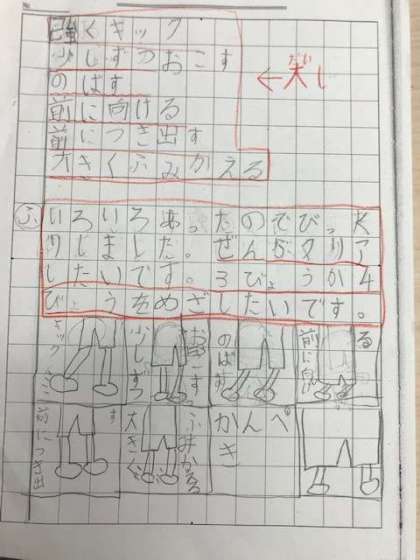 強くキック
少しずつおこす
のばす
前に向ける
前につき出す
大きくふみかえる
←大じ
だい
ふ
いろいろあったのでびっく
りしました。ぜんぶクリア
したいです。3びょうか4
びょうをめざしたいです。
キック
少しずつ
おこす
のばす
前に向
る
前につき出
す
大きく
ふみかえる
かんぺ
き